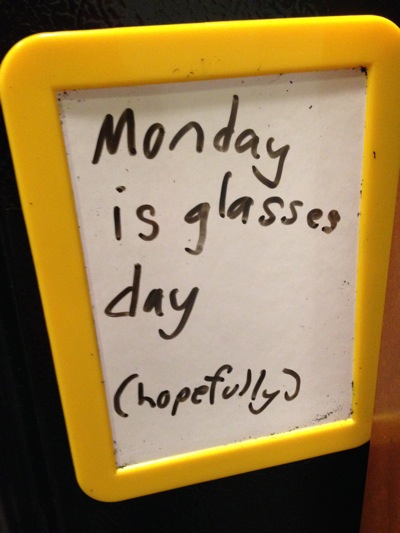 Monday
is glasses
day
(hopefully)